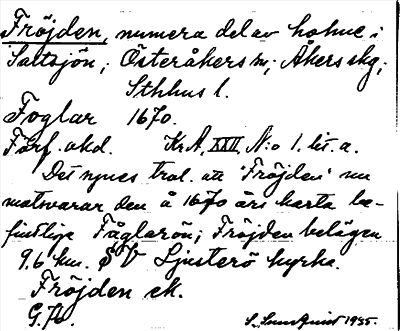 Fröjden, numera del av holme i
Saltsjön; Österåkers sn; Åkers skg;
Sthlms l.
Foglar 1670.
Förf. akd. KrA, XXII, N:o 1. lit. a.
Det synes trol. att "Fröjden" nu
motsvarar den å 1670 års karta be-
fintliga Fåglarön; Fröjden belägen
9,6 km. SV Ljusterö kyrka.
Fröjden ek.
G.70.
S. Lundquist 1935.